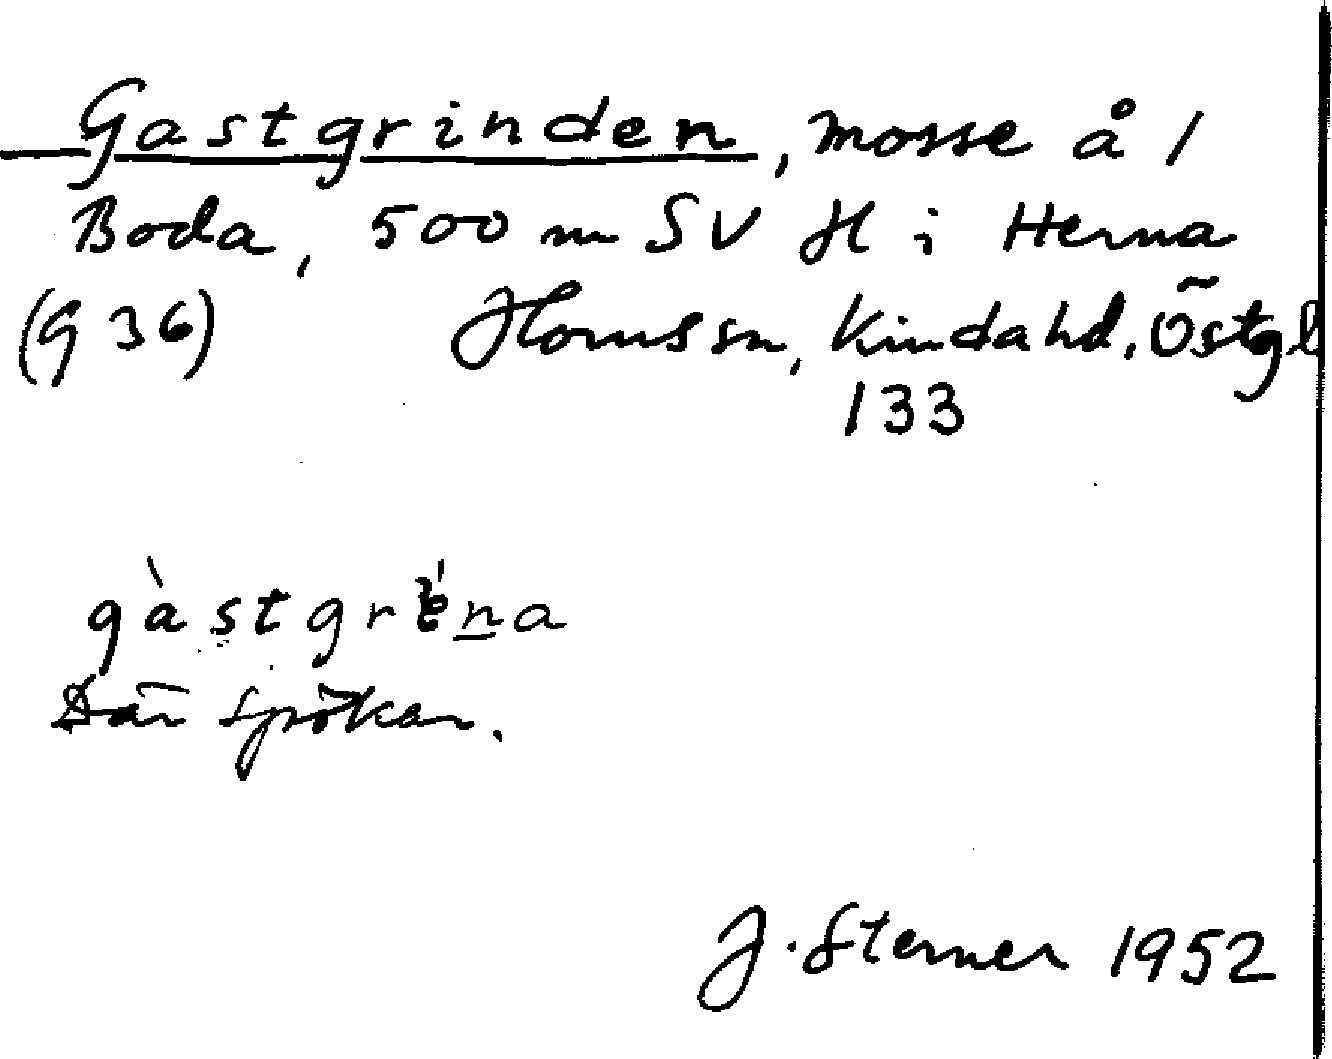 Gastgrinden, mosse å 1
Boda, 500 m SV H i Herna
(9 36) Horns sn, Kinda hd, Östgl
133
gàstgréna
Där spökar.
J. Sterner 1952